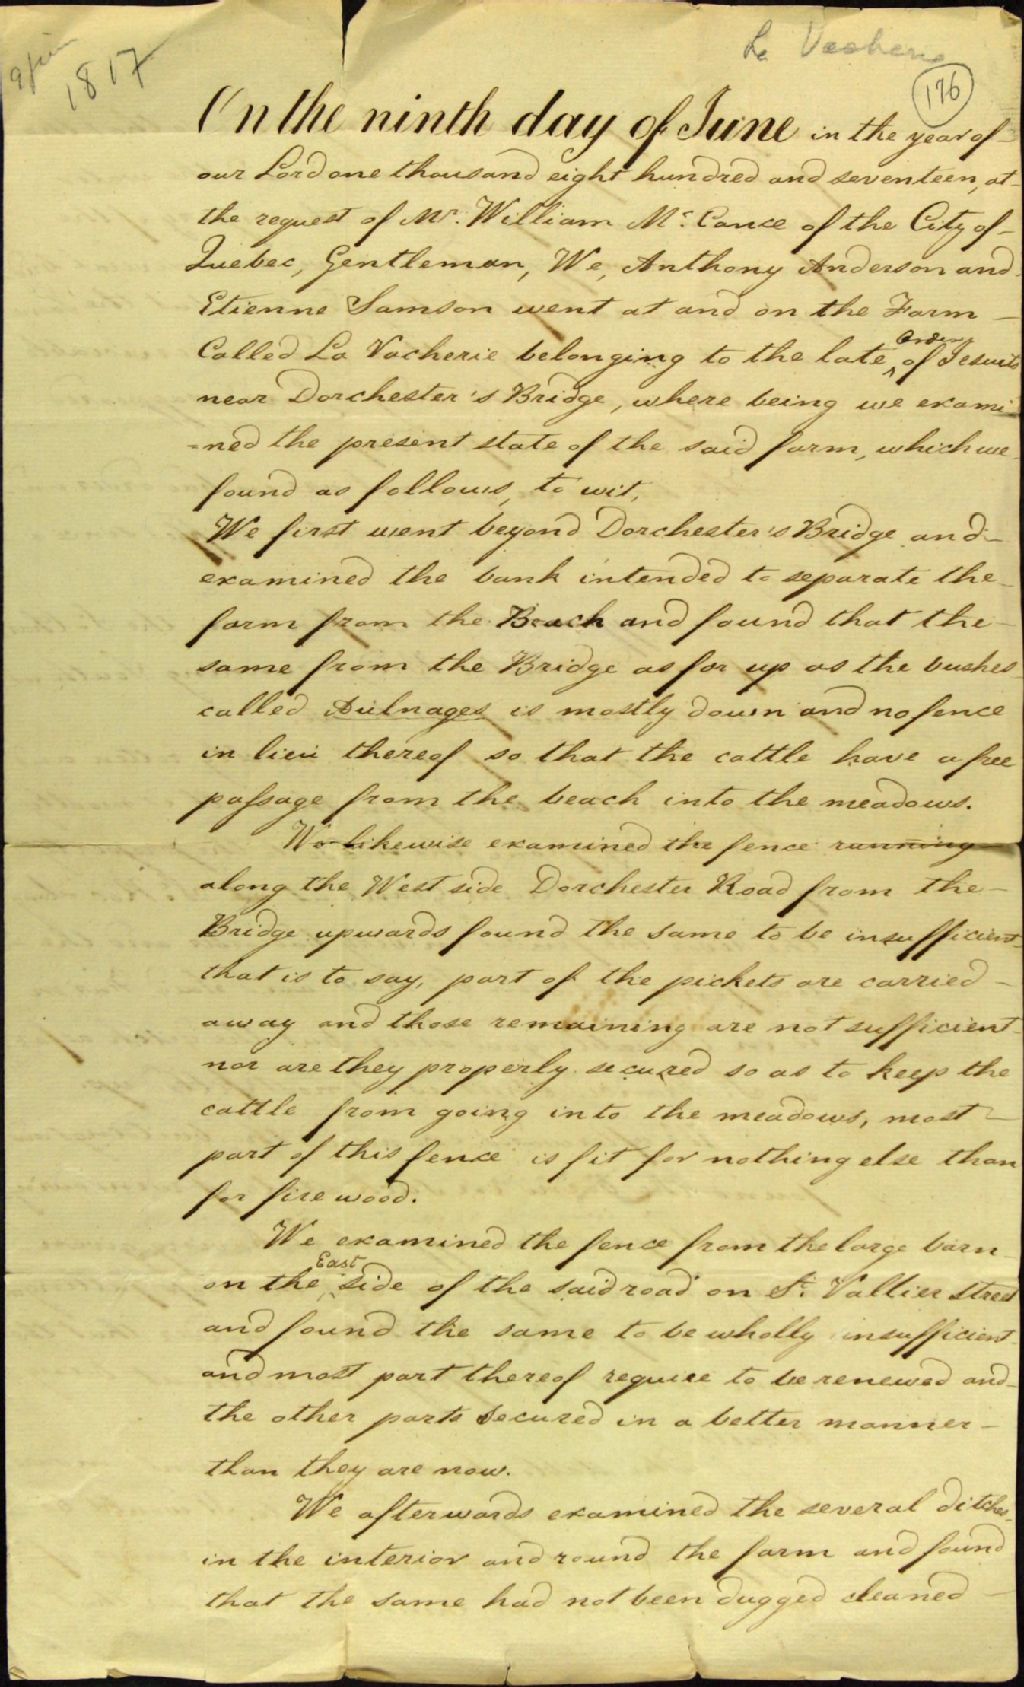 9 juin
1817
La Vacherie
176
On the ninth day of June in the year of
our Lord one thousand eight hundred and seventeen, at
the request of Mr. William Mc. Cance of the City of
Quebec, Gentleman, We, Anthony Anderson and
Etienne Samson went at and on the Farm
Called La Vacherie belonging to the late Order of Jesuits
near Dorchester's Bridge, where being we exami
=ned the present state of the said farm, which we
found as follows, to wit,
We first went beyond Dorchester's Bridge and
examined the bank intended to separate the
farm from the Beach and found that the
same from the Bridge as far up as the bushes
called Aulnages is mostly down and no fence
in lieu thereof so that the cattle have a free
passage from the beach into the meadows.
We likewise examined the fence running
along the West side Dorchester Road from the
Bridge upwards found the same to be insufficient
that is to say, part of the pickets are carried
away and those remaining are not sufficient
nor are they properly secured so as to keep the
cattle from going into the meadows, most
part of this fence is fit for nothing else than
for fire wood.
We examined the fence from the large barn
on the East side of the said road on St. Vallier street
and found the same to be wholly insufficient
and most part thereof require to be renewed and
the other parts secured in a better manner
than they are now.
We afterwards examined the several ditches
in the interior and round the farm and found
that the same had not been dugged cleaned